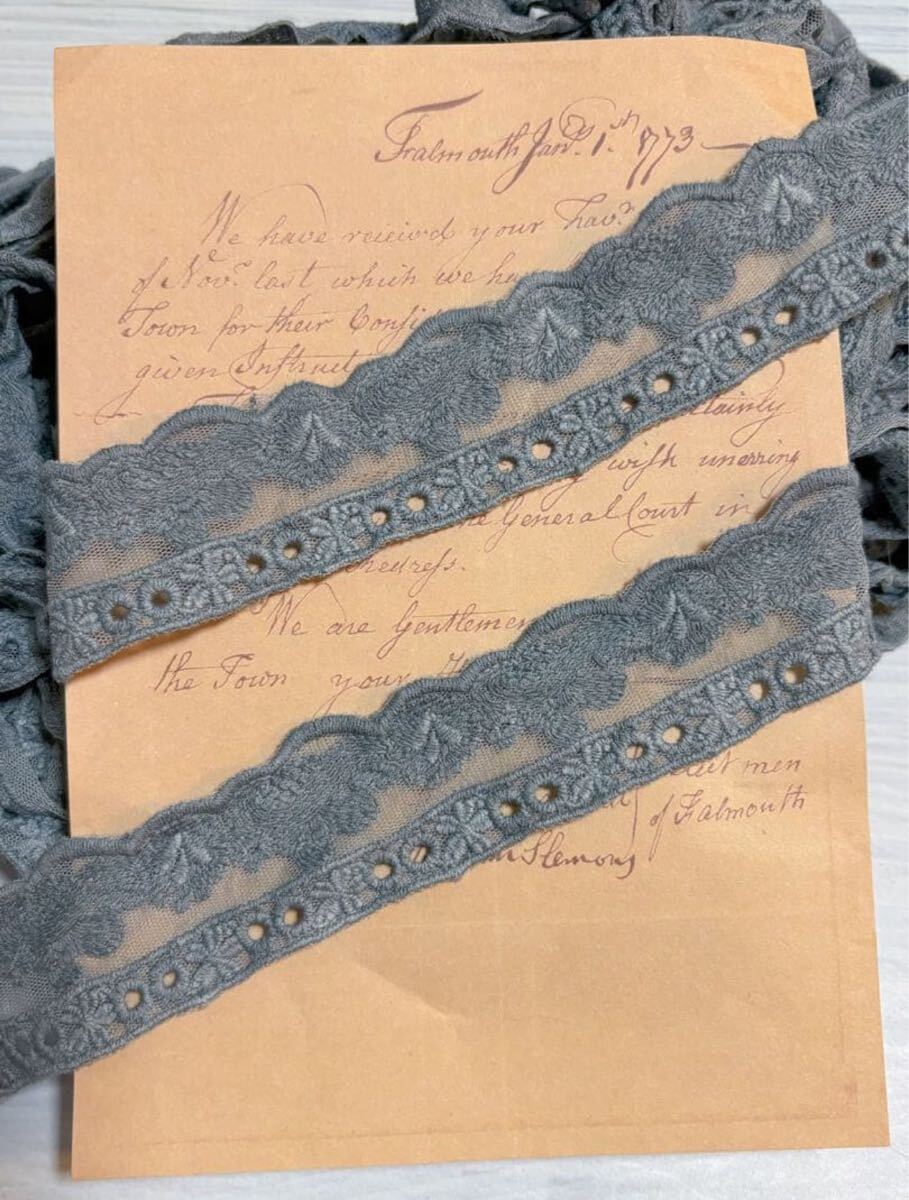 Falmouth Jan.y 1.st 1773
We have receivd your Fav.r
of Nov.r last which we ha
Town for their Consi
given Instruct
tainly
wish unerring
he General Court in
redress.
We are Gentlemen
the Town your H
lect men
of Falmouth
m Slemons